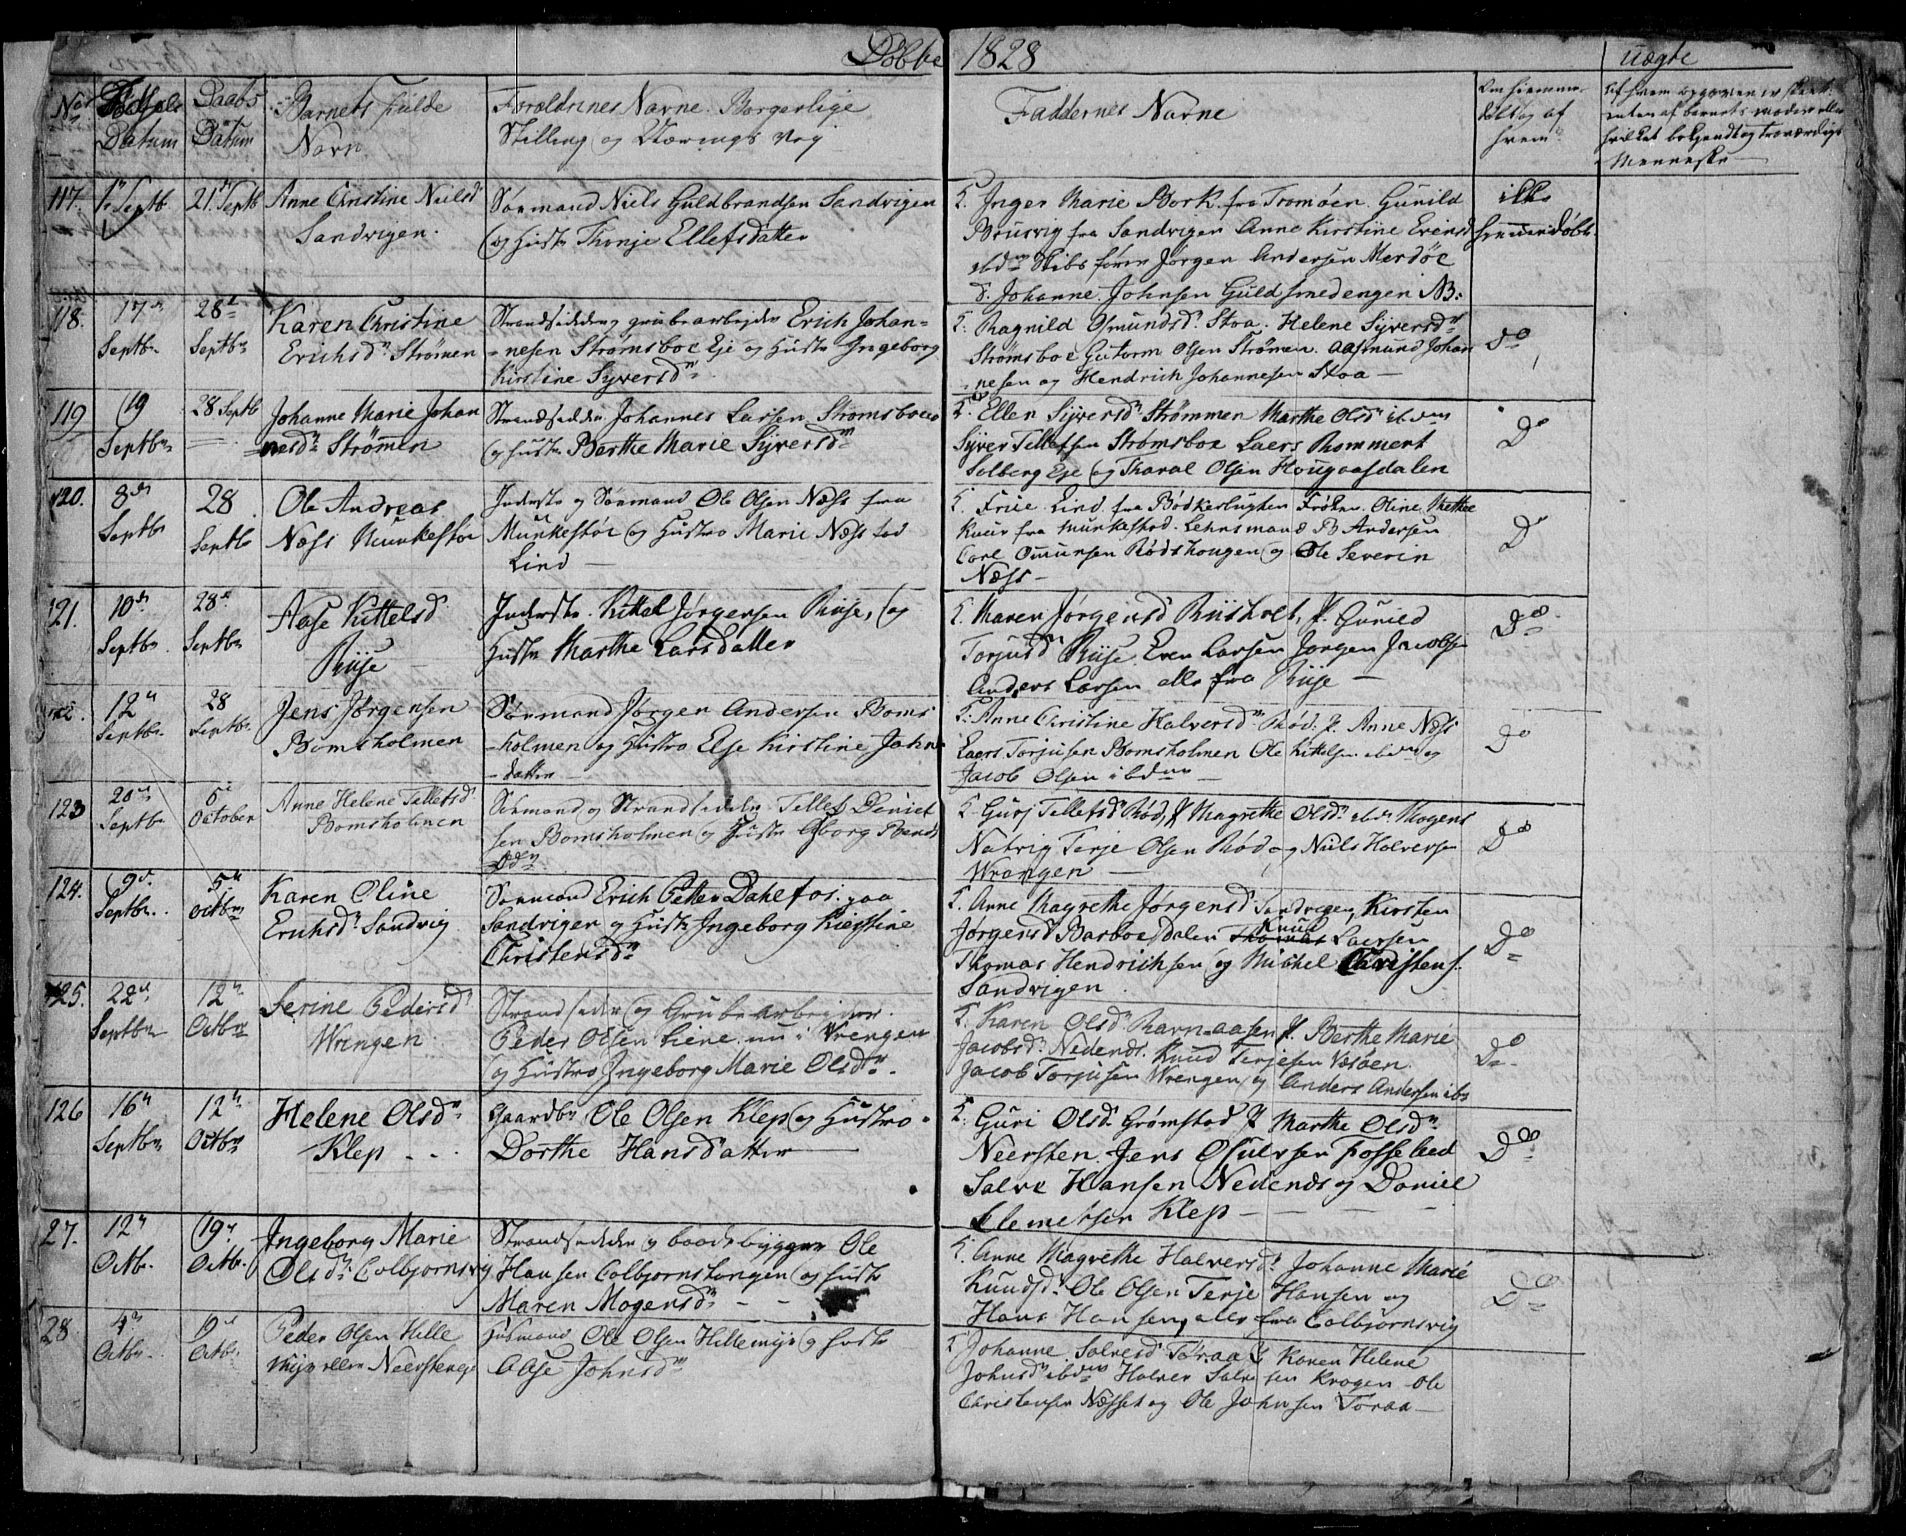 Døbte 1828
uægte
No
Fødsels Datum
Daabs Datum
Barnets fulde Navn
Forældrenes Navne Borgerlige
Stilling og Værings Vej
Faddernes Navne
Om hiemme-
døbt og af
hvem?
Af hvem opgaven er skeet
enten af barnets moder eller
hvilket bekjendt og troværdigt
Menneske
117. 1 Septb. 21 Septb
Anne Christine Nielsd
Sandvigen.
Sømand Niels Guldbrandsen Sandvigen
og Hustr Thonje Ellefsdatter
Inger Marie Bork fra Tromøen Gunild
Brusvig fra Sandvigen Anne Kirstine Evensd
ibdm Skibsfører Jørgen Andersen Merdøe
Johanne Johnsen Guldsmedengen NB:
ikke
hiemmedøbt
118. 17de Septbr 28de Septbr
Karen Christine
Erichsdr Strømen
Strandsidder og grubearbejder Erich Johan-
-nesen Strømsboe Eje og Hustr Ingeborg
Kirstine Syversdr
Ragnild Osmundsd. Stoa. Helene Syversdr
Strømsboe Gutorm Olsen Strømen Aasmund Johan
-nesen og Hendrich Johannesen Stoa
Do
119 19 Septbr 28 Septb
Johanne Marie Johan
nesdr Strømen
Strandsidder Johannes Larsen Strømsboe
og Hustr Berthe Marie Syversdr
Ellen Syversd Strømmen Marthe Olsd ibdm
Syver Tellefsen Strømsboe Laers Romment
Solberg Eje og Tharal Olsen Hougaasdalen
Do
120. 8de Septbr 28 Septb
Ole Andreas
Næss Munkestøe
Inderste og Sømand Ole Olsen Næss fra
Munkestøe og Hustro Marie Næss fød
Lind
Frue Lind fra Bødkerbugten Frøken Oline Mettee
fra Munkestød. Lehnsmand B Andersen
Carl Omunsen Rødshougen og Ole Severin
Næss
Do
121. 10de Septbr 28de Septbr
Aase Kittelsd
Riise
Inderste Kittel Jørgensen Riise, og
Hustr Marthe Larsdatter
Maren Jørgensd Riisholt, P. Gunild
Torjusd Riise Even Larsen Jørgen Jacobsen
Anders Larsen alle fra Riise
Do
12 Septbr 28 Septbr
Jens Jørgensen
Bomsholmen
Sømand Jørgen Andersen Boms
-holmen og Hustro Else Kirstine John
datter
Anne Christine Halversdr Rød. P. Anne Næss
Laers Torjusen Bomsholmen Ole Kittelsen ibdm og
Jacob Olsen ibdm
Do
123 20de Septbr 5te October
Anne Helene Tellefsd
Bomsholmen
Sømand og Strandsidder Tellef Daniel
sen Bomsholmen og Hustr
Guri Tellefsd Rød, P Magrethe Olsd ibdm Mogens
Natvig Terje Olsen Rød og Niels Halversen
Wrengen
Do
124. 9de Septbr. 5te Octbr
Karen Oline
Erichsdr Sandvig
Sømand Erich Petter Dalefos. paa
Sandvigen og Hustr Ingeborg Kierstine
Christensdr
Anne Magrethe Jørgensd Sandvigen, Kirsten
Jørgensd Barboedalen Knud Laersen
Thomas Hendrichsen og Michel Christens.
Sandvigen
Do
125. 22de Septbr 12te Octbr
Serine Pedersd
Wrengen
Strandsidder og Grubearbejder.
Peder Olsen Liene nu i Wrengen
og Hustro Ingeborg Marie Olsdr.
Karen Olsdr Ravnaasen P. Berthe Marie
Jacobsd. Nedends. Knud Terjesen Vasøen
Jacob Torjusen Wrengen, og Anders Andersen ibd
Do
126 16de Septbr 12te Octbr
Helene Olsdr
Klep
Gaardbr Ole Olsen Klep og Hustro
Dorthe Hansdatter
Guri Olsd. Grømstad P Marthe Olsdr
Neersten. Jens Osulvsen Fosselied
Salve Hansen Nedends og Daniel
Clemetsen Klep
Do
27. 12 Octb. 19 Octb.
Ingeborg Marie
Olsdr Colbjørnsvig
Strandsidder og baadebygger Ole
Hansen Colbjørnstangen og Hustr
Maren Mogensdr
Anne Magrethe Halversd. Johanne Marie
Knudsd. Ole Olsen Terje Hansen og
Hans Hansen, alle fra Colbjørnsvig
Do
28 4de Octbr. 19de Octbr.
Peder Olsen Helle
myr eller Neersteneje
Husmand Ole Olsen Hellemyr og Hustr
Aase Johnsdr
Johanne Salvesd Toraa Karen Helene
Johnsd ibdm Halver Salvesen Krogen Ole
Christensen Næsset og Ole Johnsen Toraa